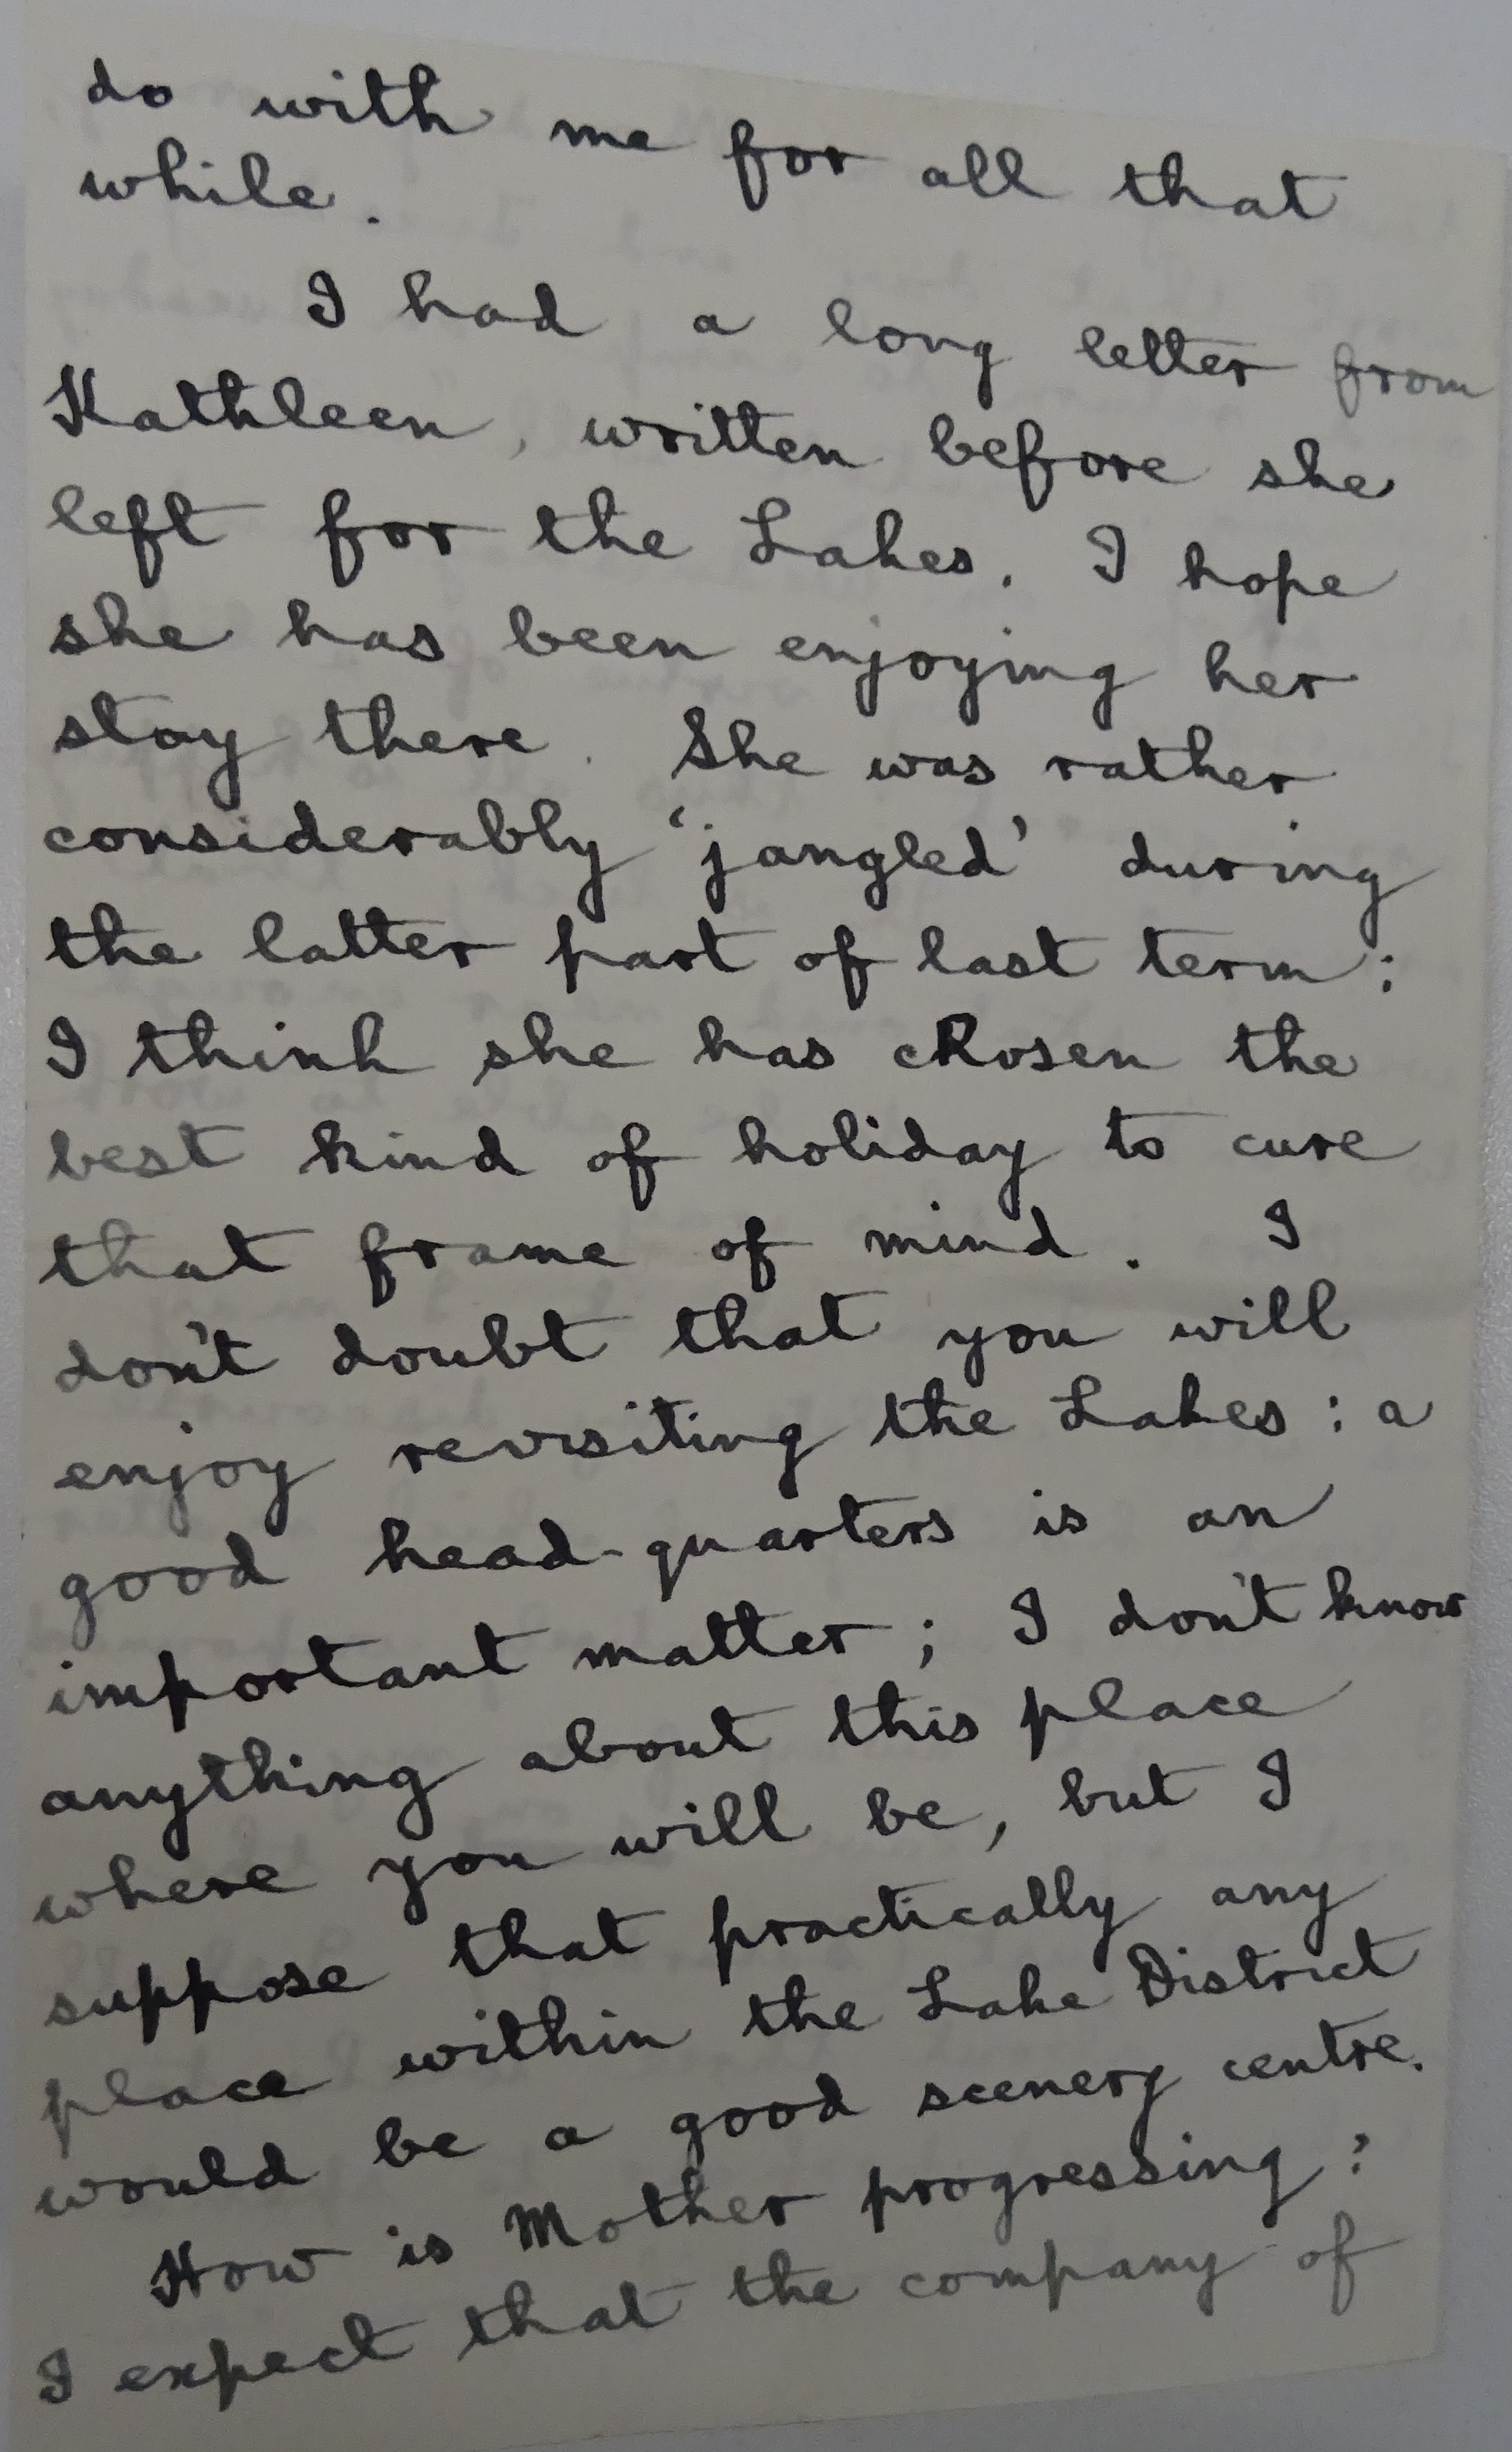 do with me for all that
while.
I had a long letter from
Kathleen, written before she
left for the Lakes. I hope
she has been enjoying her
stay there. She was rather
considerably 'jangled' during
the latter part of last term;
I think she has chosen the
best kind of holiday to cure
that frame of mind. I
don't doubt that you will
enjoy revisiting the Lakes: a
good head-quarters is an
important matter; I don't know
anything about this place
where you will be, but I
suppose that practically any
place within the Lake District
would be a good scenery centre.
How is Mother progressing?
I expect that the company of